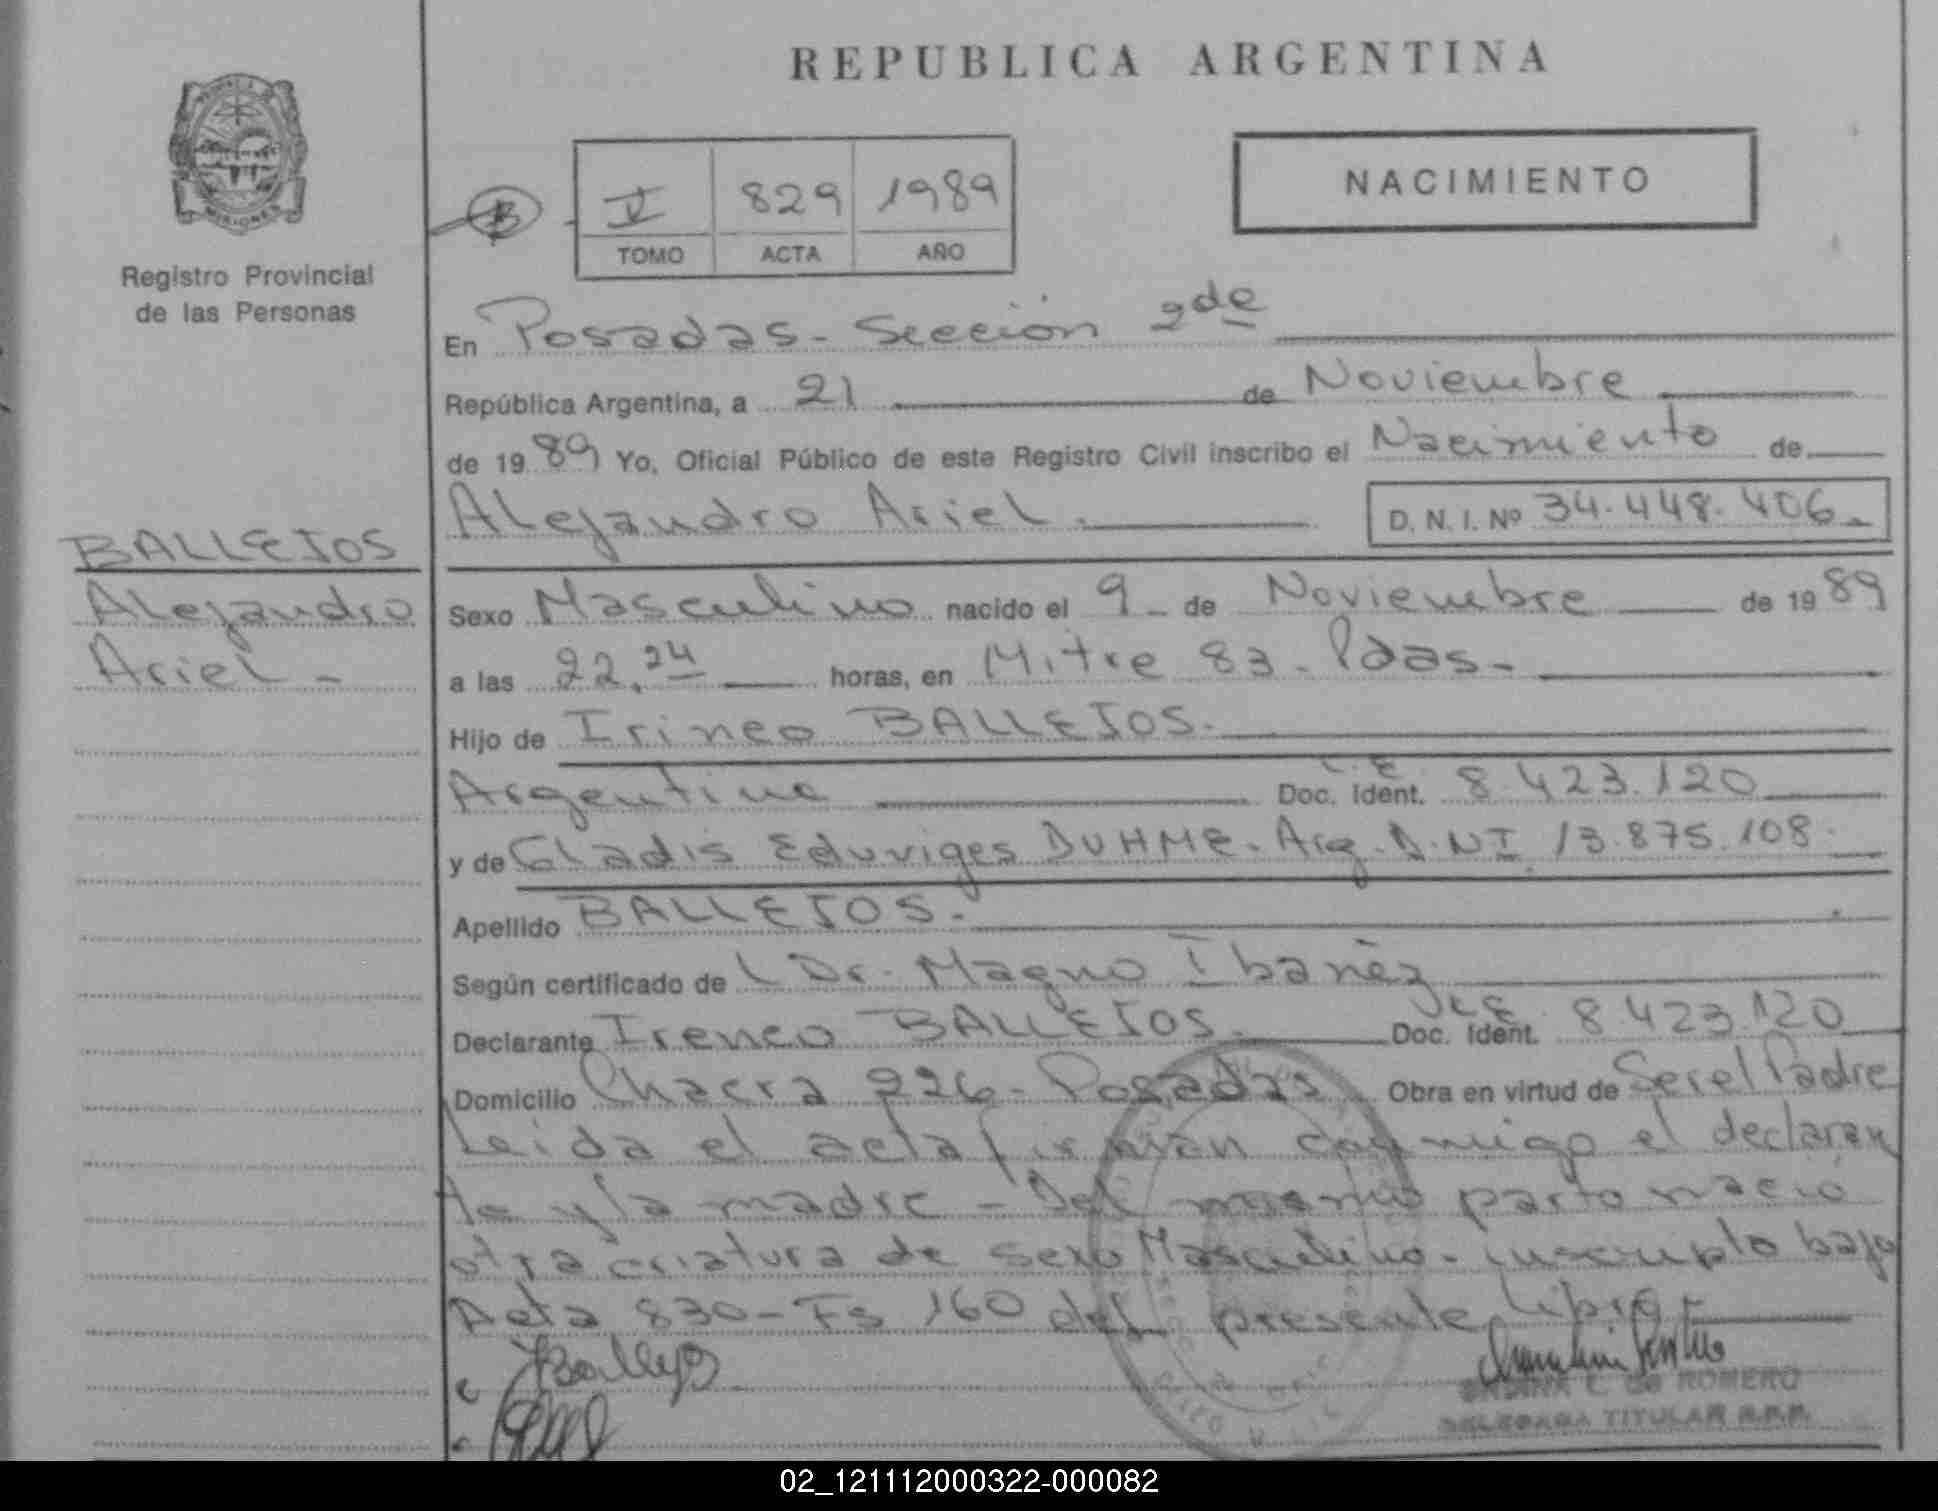 REPUBLICA ARGENTINA
MISIONES
Registro Provincial
de las Personas
NACIMIENTO
B
V 829 1989
TOMO ACTA AÑO
En Posadas - Sección 2da
República Argentina, a 21 de Noviembre
de 1989 Yo, Oficial Público de este Registro Civil inscribo el Nacimiento de
Alejandro Ariel. D. N. I. Nº 34.448.406.
BALLEJOS
Alejandro
Ariel -
Sexo Masculino nacido el 9 - de Noviembre de 1989
a las 22,24 horas, en Mitre 83 - Pdas -
Hijo de Irineo BALLEJOS.
Argentino L.E. Doc. Ident. 8.423.120
y de Gladis Eduviges DUHME. Arg. D.NI 13.875.108.
Apellido BALLEJOS.
Según certificado de Dr. Magno Ibañez
Declarante Ireneo BALLEJOS. L.E. Doc. Ident. 8.423.120
Domicilio Chacra 226 - Posadas Obra en virtud de Ser el Padre
Leida el acta firman conmigo el declaran
te y la madre - Del mismo parto nació
otra criatura de sexo Masculino - inscripto bajo
Acta 830 - Fs 160 del presente Libro -
L. de ROMERO
DELEGADA TITULAR R.P.P.
02_121112000322-000082